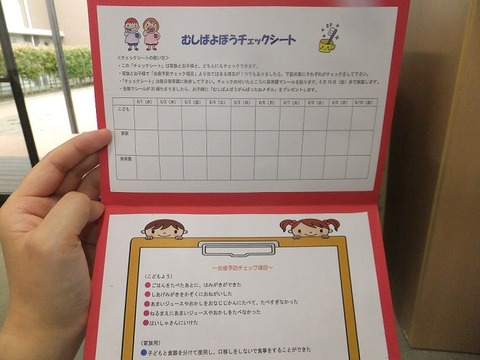 むしばよぼうチェックシート
<チェックシートの使い方>
・この「チェックシート」は家族とお子様と、どちらにもチェックできます。
・家族とお子様で「虫歯予防チェック項目」より当てはまる項目が1つでもありましたら、下記の表にそれぞれがチェックをして下さい。
・「チェックシート」は毎日保育園に持参して下さい。チェックの付いたところに保育園でシールを貼ります。6月10日(金)まで実施します。
・全部でシールが20個たまりましたら、お子様に「むしばよぼうがんばったねメダル」をプレゼントします。
6/1(水) 6/2(木) 6/3(金) 6/4(土) 6/5(日) 6/6(月) 6/7(火) 6/8(水) 6/9(木) 6/10(金)
こども
家族
保育園
～虫歯予防チェック項目～
(こどもよう)
●ごはんをたべたあとに、はみがきができた
●しあげみがきをかぞくにおねがいした
●あまいジュースやおかしをおなじじかんにたべて、たべすぎなかった
●ねるまえにあまいジュースやおかしをたべなかった
●はいしゃさんにいけた
(家族用)
●子どもと食器を分けて使用し、口移しをしないで食事をすることができた